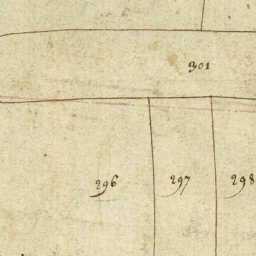 301
296 297 298